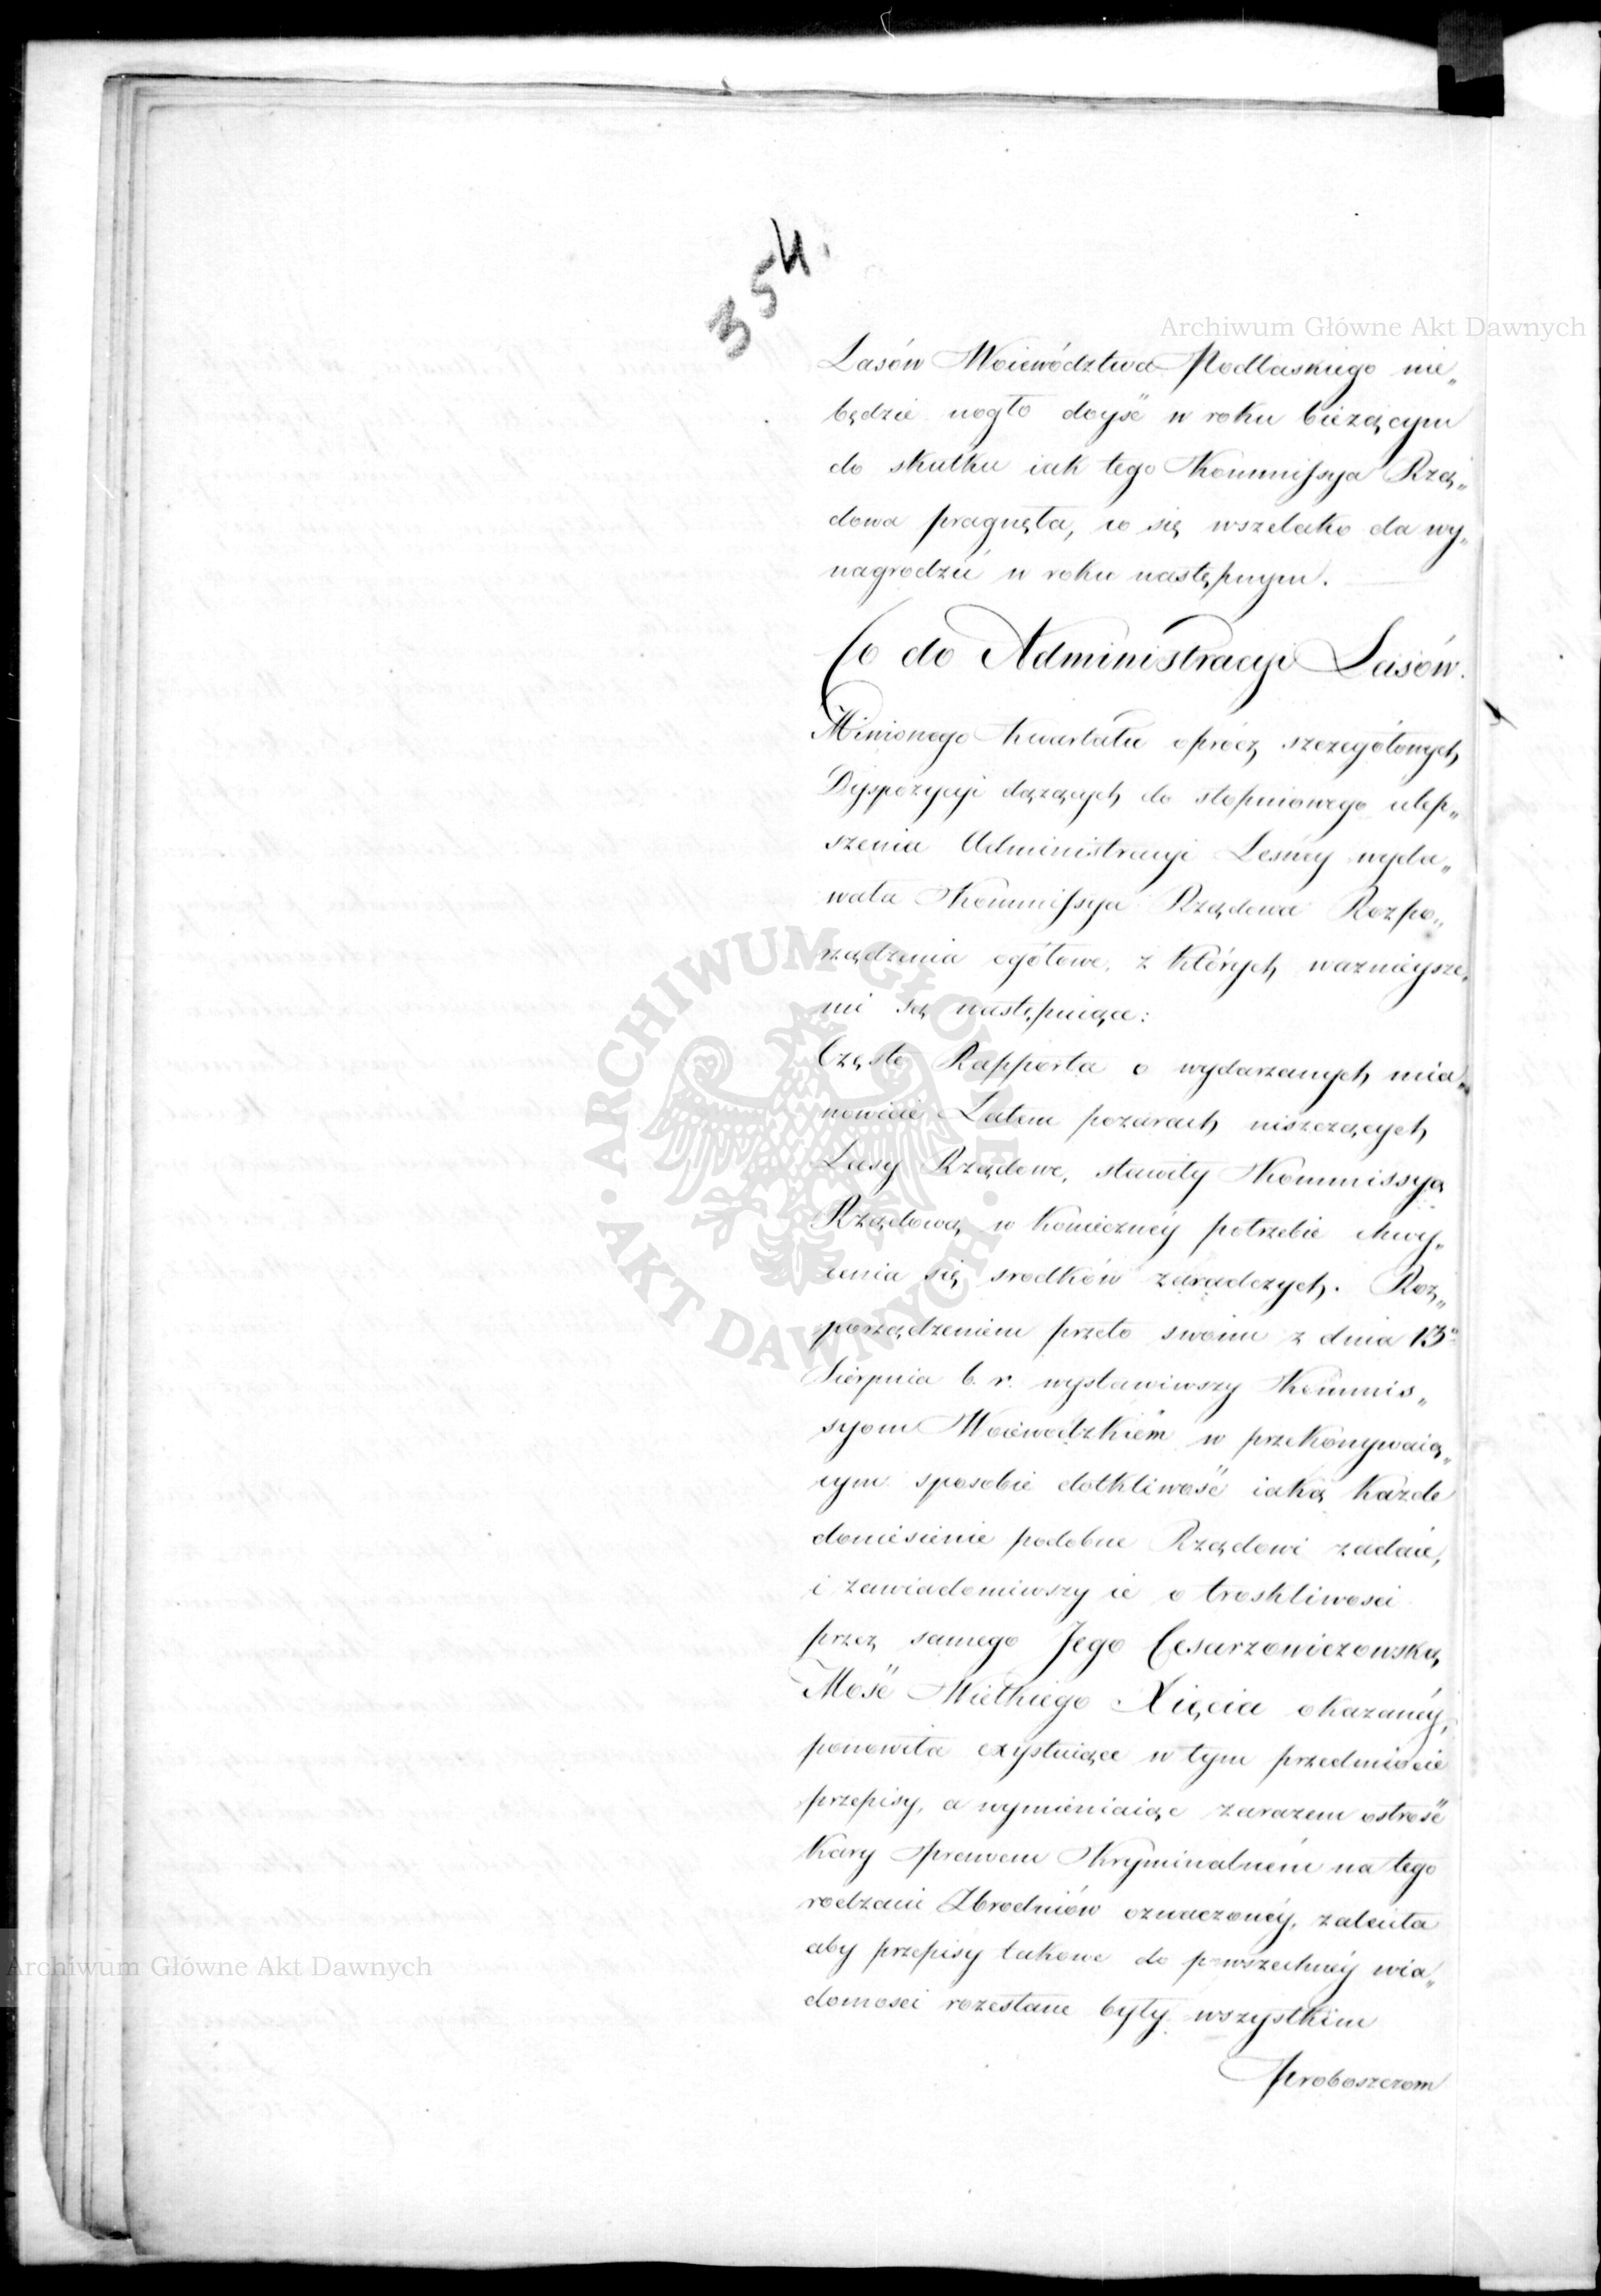 354.
Archiwum Główne Akt Dawnych
Lasów Woiewództwa Podlaskiego nie„
będzie mogło doyść w roku bieżącym
do skutku iak tego Kommissya Rzą„
dowa pragnęła, co się wszelako da wy„
nagrodzić w roku następnym.
Co do Administracyi Lasów.
Minionego Kwartału oprócz szczegółowych
Dyspozycyi dążących do stopniowego ulep„
szenia Administracyi Leśney wyda„
wała Kommissya Rządowa Rozpo„
rządzenia ogółowe, z których ważnieysze„
mi są następuiące:
Częste Rapporta o wydarzanych mia„
nowicie Latem pożarach niszczących
Lasy Rządowe, stawiły Kommissyą
Rządową w konieczney potrzebie chwy„
cenia się srodków zaradczych. Roz„
porządzeniem przeto swoim z dnia 13º
Sierpnia b. r. wystawiwszy Kommis„
syom Woiewodzkiem w przekonywaią„
cym sposobie dotkliwość iaką każde
doniesienie podobne Rządowi zadaie,
i zawiadomiwszy ie o troskliwosci
przez samego Jego Cesarzowiczowską
Mość Wielkiego Xięcia okazaney,
ponowiła exystuiące w tym przedmiocie
przepisy, a wymieniaiąc zarazem ostrość
Kary Prawem Kryminalném na tego
rodzaiu Zbrodniów oznaczoney, zaleciła
aby przepisy takowe do powszechney wia„
domosci rozesłane były wszystkim
Proboszczom
Archiwum Główne Akt Dawnych
ARCHIWUM GŁÓWNE · AKT DAWNYCH ·